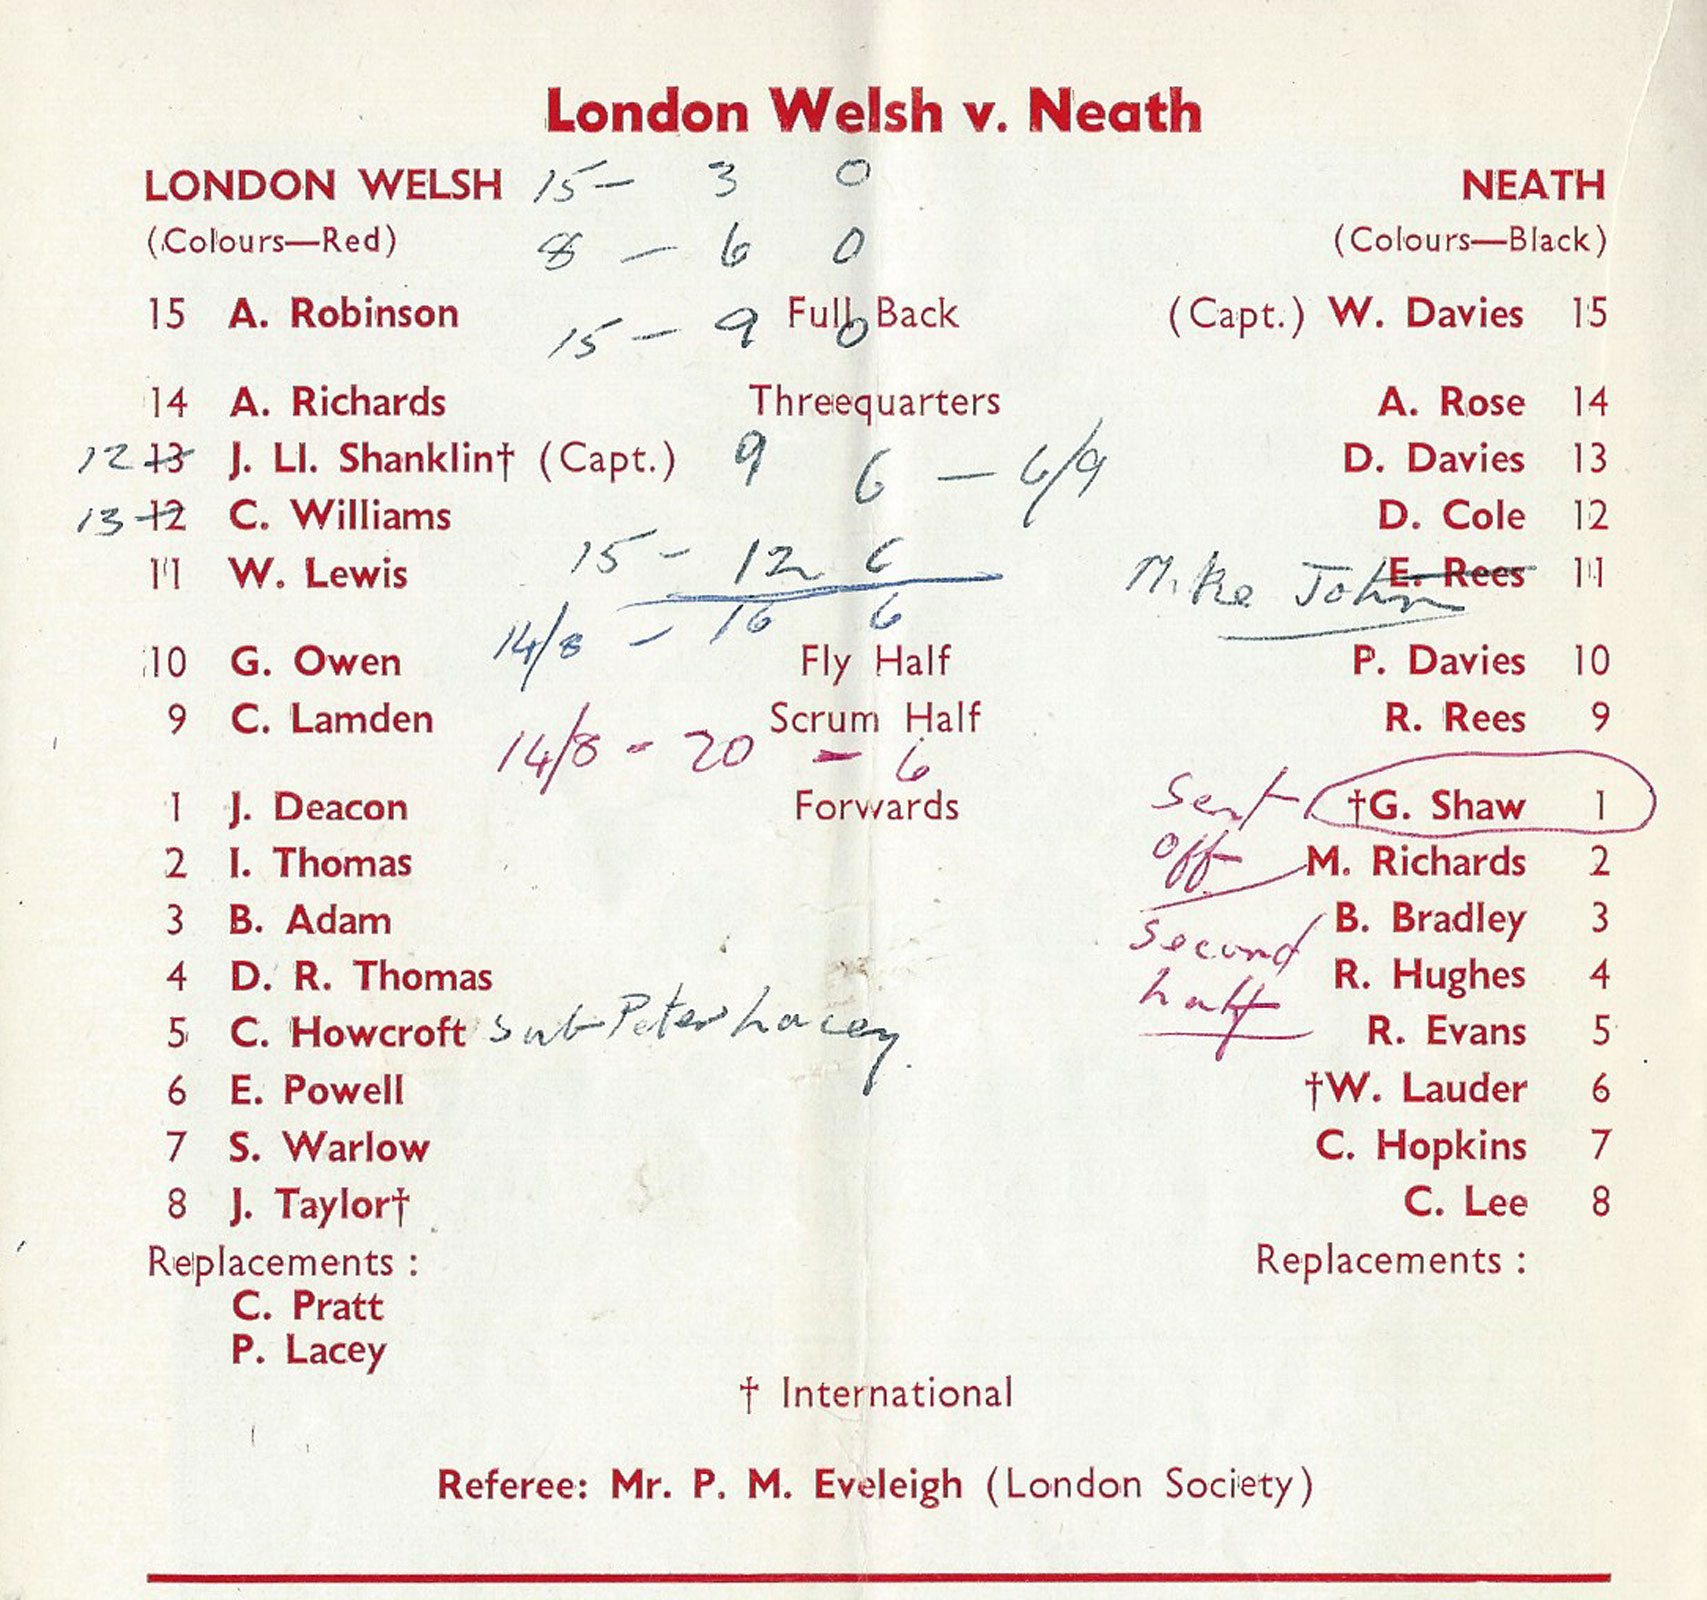 London Welsh v. Neath
LONDON WELSH 15 – 3 0 NEATH
(Colours—Red) 8 – 6 0 (Colours—Black)
15 A. Robinson Full Back (Capt.) W. Davies 15
15 – 9 0
14 A. Richards Threequarters A. Rose 14
12 13 J. Ll. Shanklin† (Capt.) 9 D. Davies 13
6 – 6/9
13 12 C. Williams D. Cole 12
15 – 12 6
11 W. Lewis Mike John E. Rees 11
14/8 – 16 6
10 G. Owen Fly Half P. Davies 10
9 C. Lamden Scrum Half R. Rees 9
14/8 - 20 - 6
1 J. Deacon Forwards Sent †G. Shaw 1
2 I. Thomas off M. Richards 2
3 B. Adam second B. Bradley 3
4 D. R. Thomas half R. Hughes 4
5 C. Howcroft sub Peter Lacey. R. Evans 5
6 E. Powell †W. Lauder 6
7 S. Warlow C. Hopkins 7
8 J. Taylor† C. Lee 8
Replacements : Replacements :
C. Pratt
P. Lacey
† International
Referee: Mr. P. M. Eveleigh (London Society)